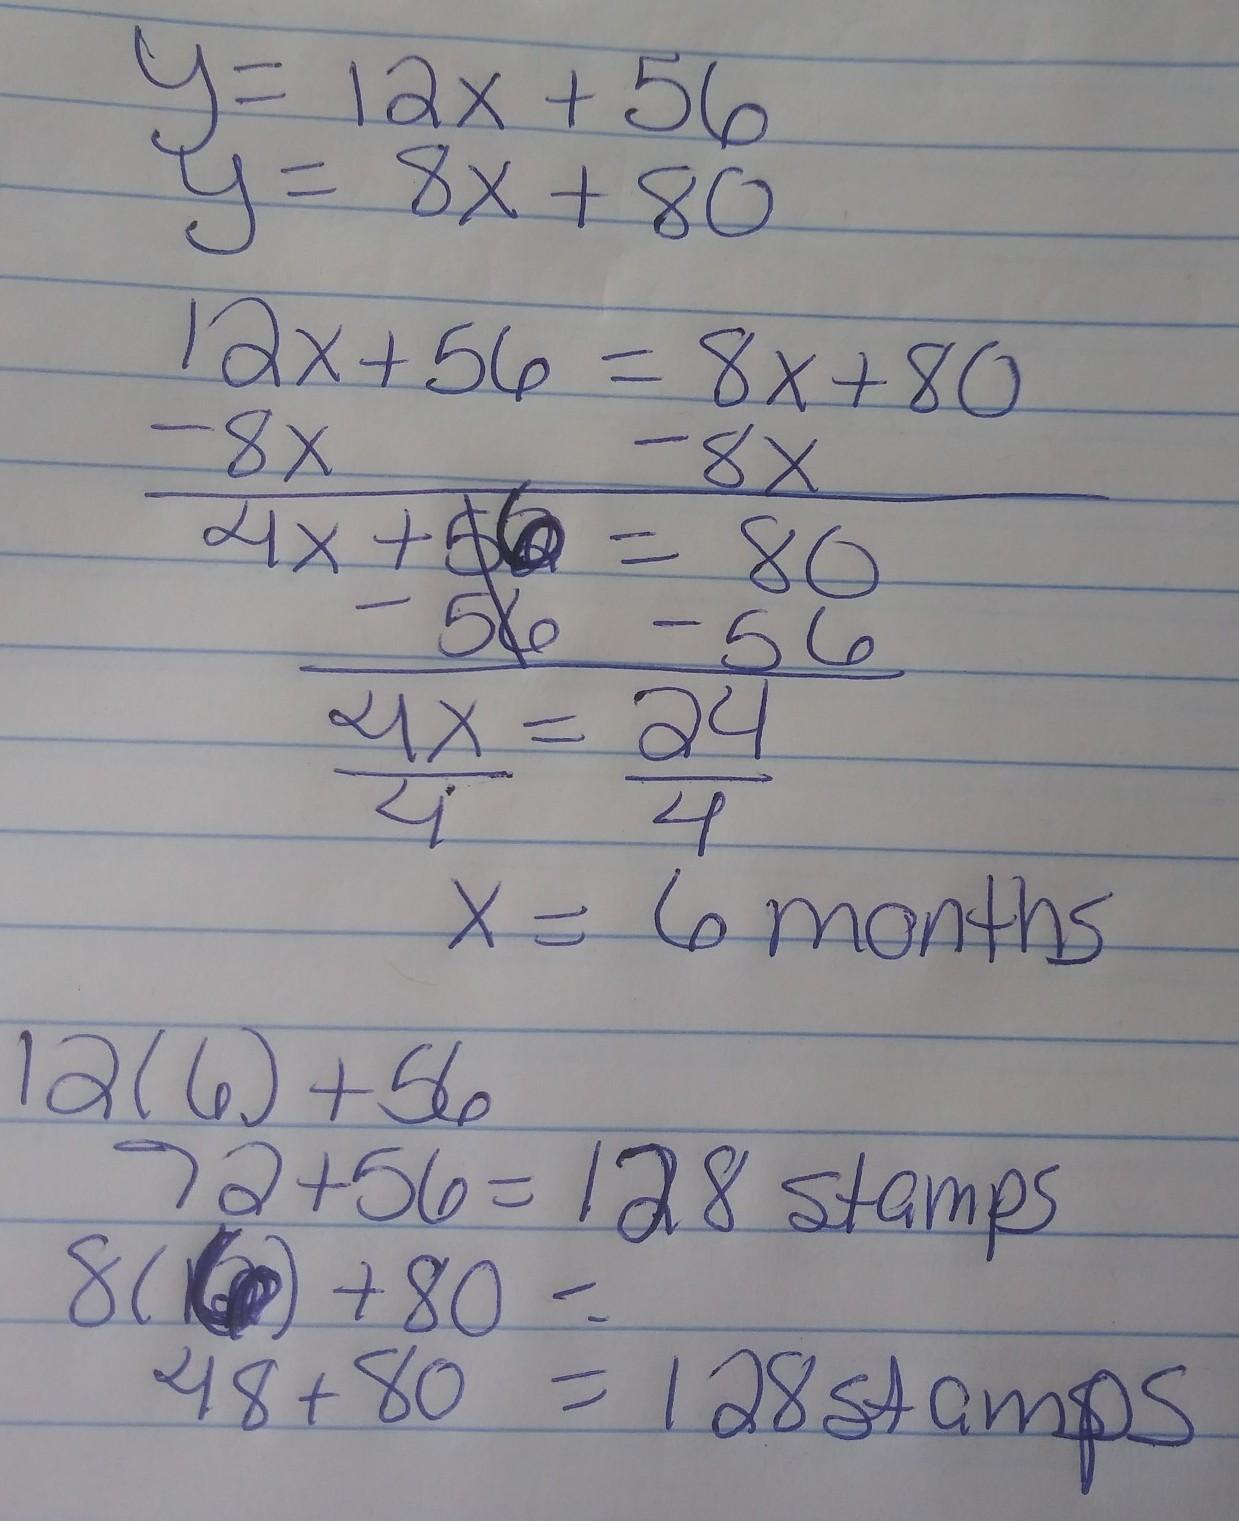 y = 12x + 56
y = 8x + 80
12x + 56 = 8x + 80
-8x -8x
4x + 56 = 80
- 56 - 56
4x = 24
4 4
x = 6 months
12(6) + 56
72 + 56 = 128 stamps
8(6) + 80 =
48 + 80 = 128 stamps